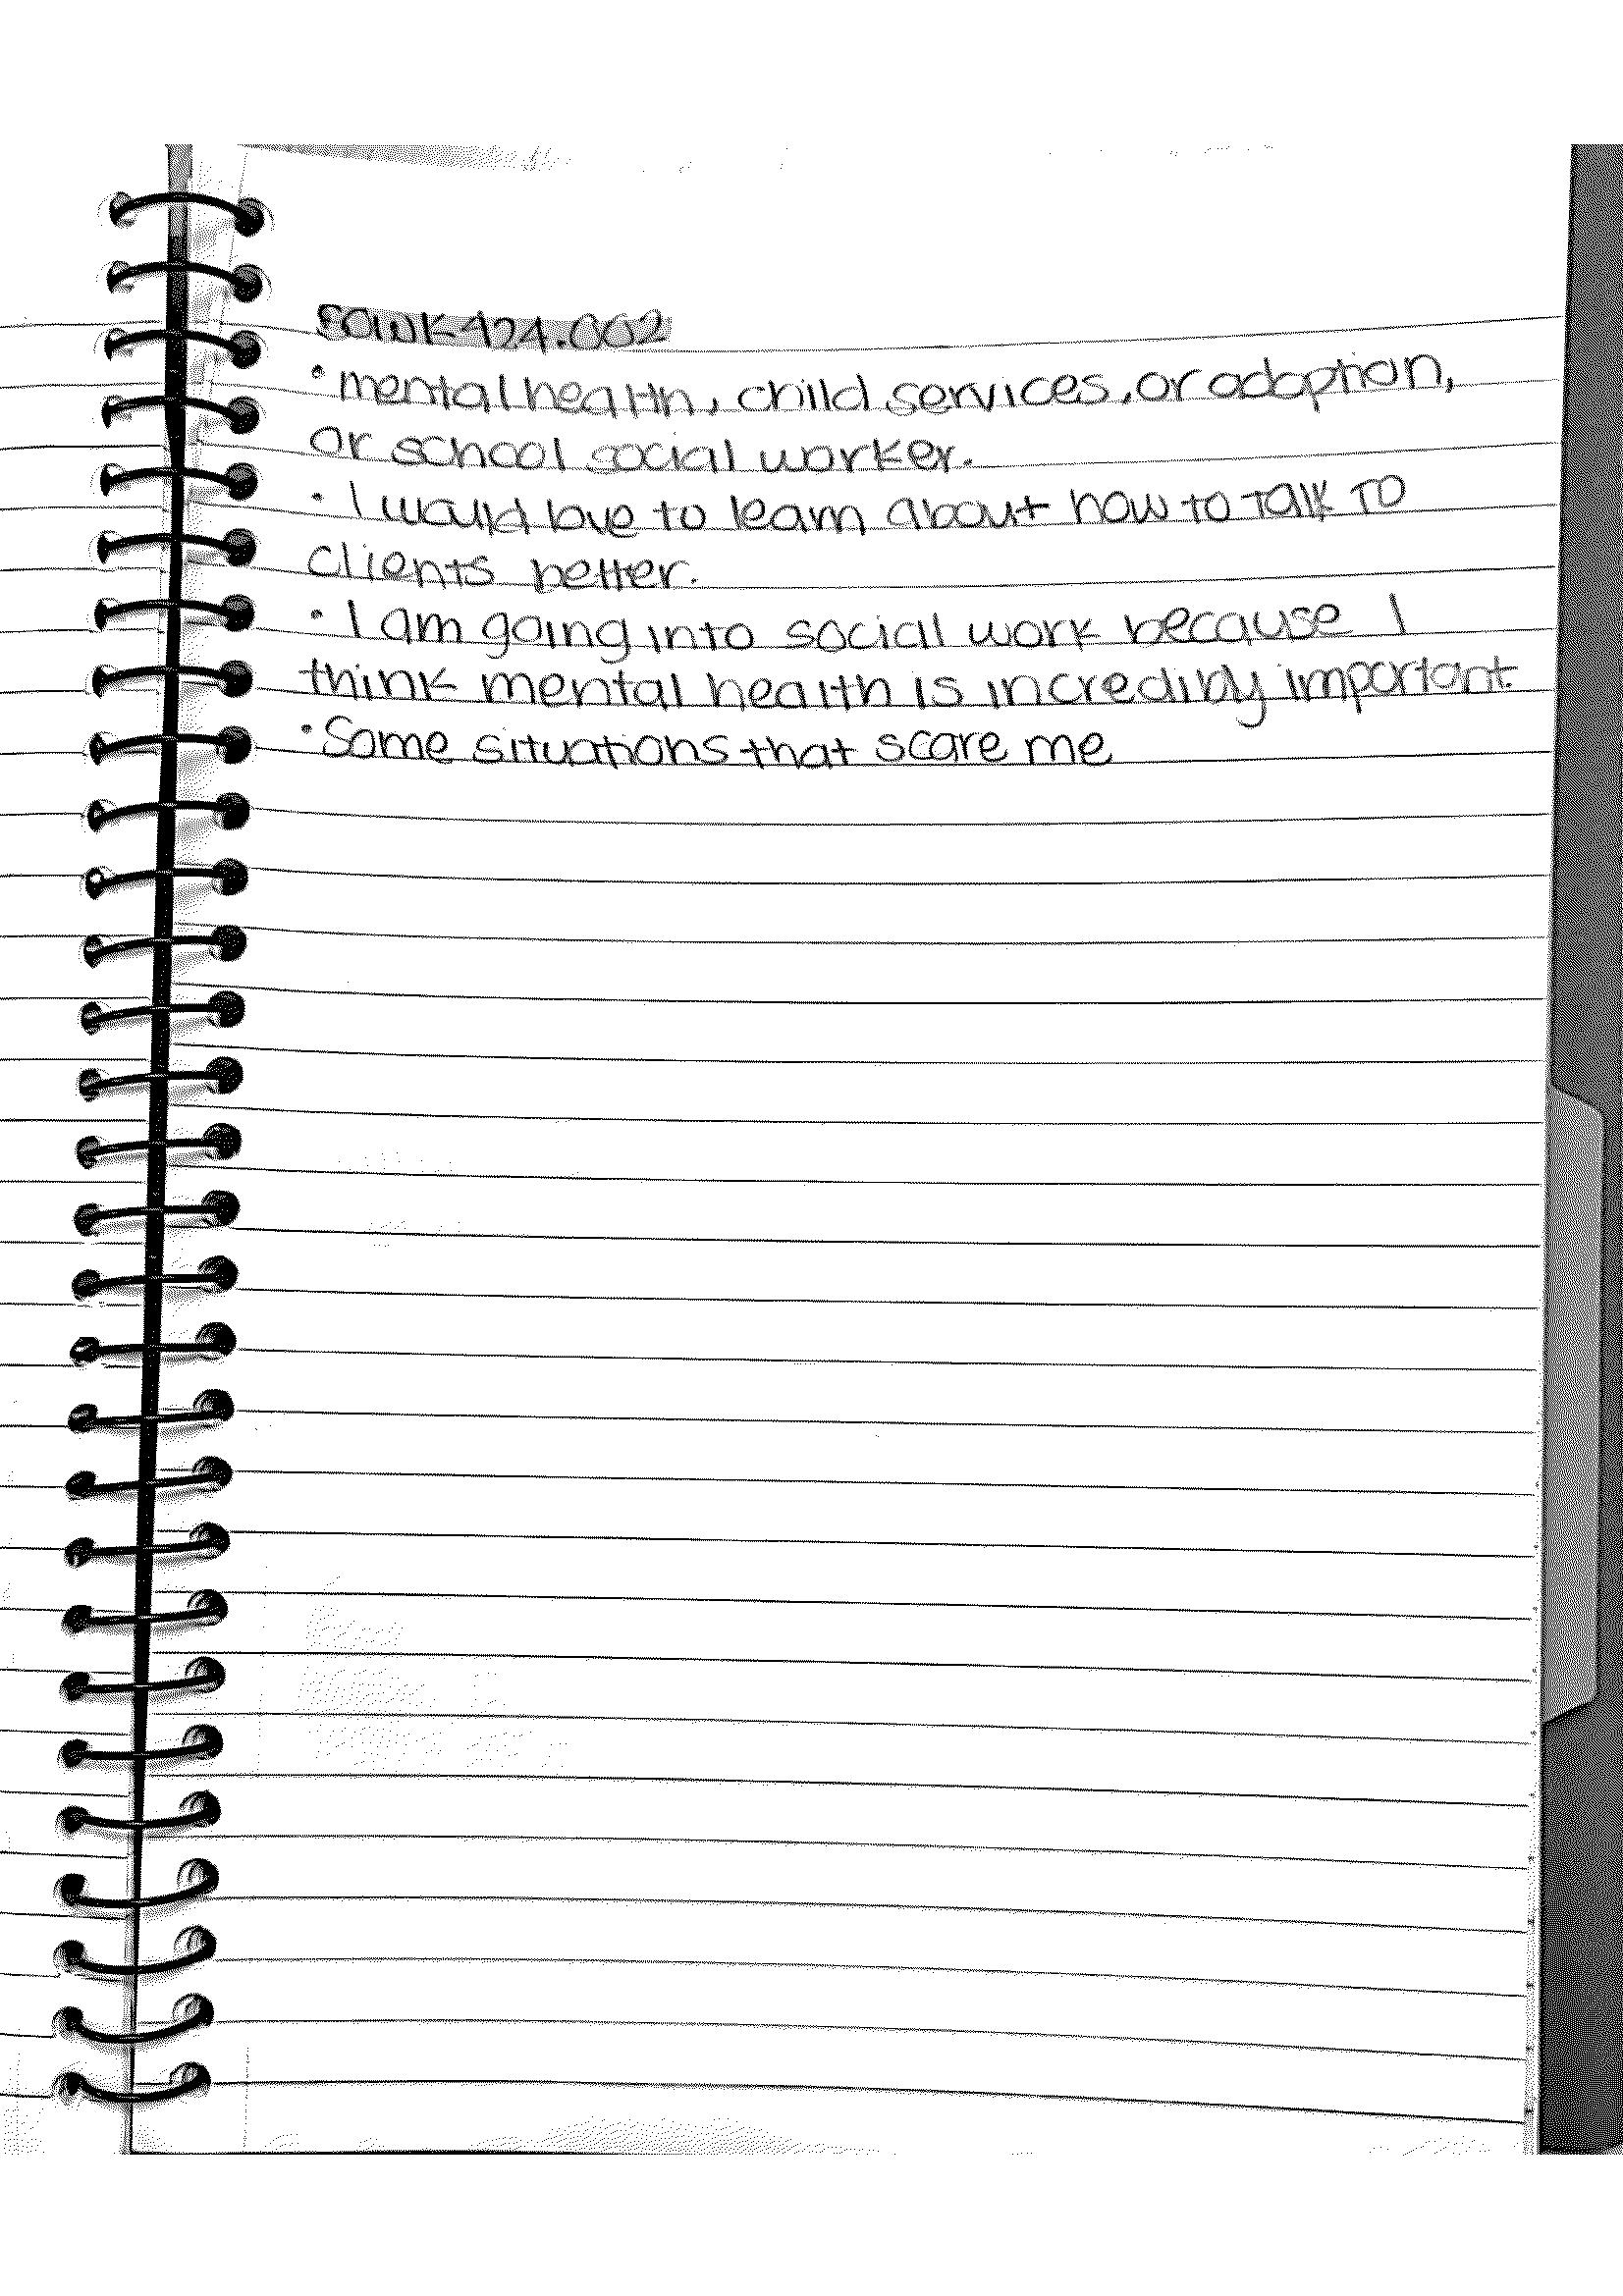 SOWK 424.002
• mental health, child services, or adoption,
or school social worker.
• I would love to learn about how to talk to
clients better.
• I am going into social work because I
think mental health is incredibly important.
• Some situations that scare me